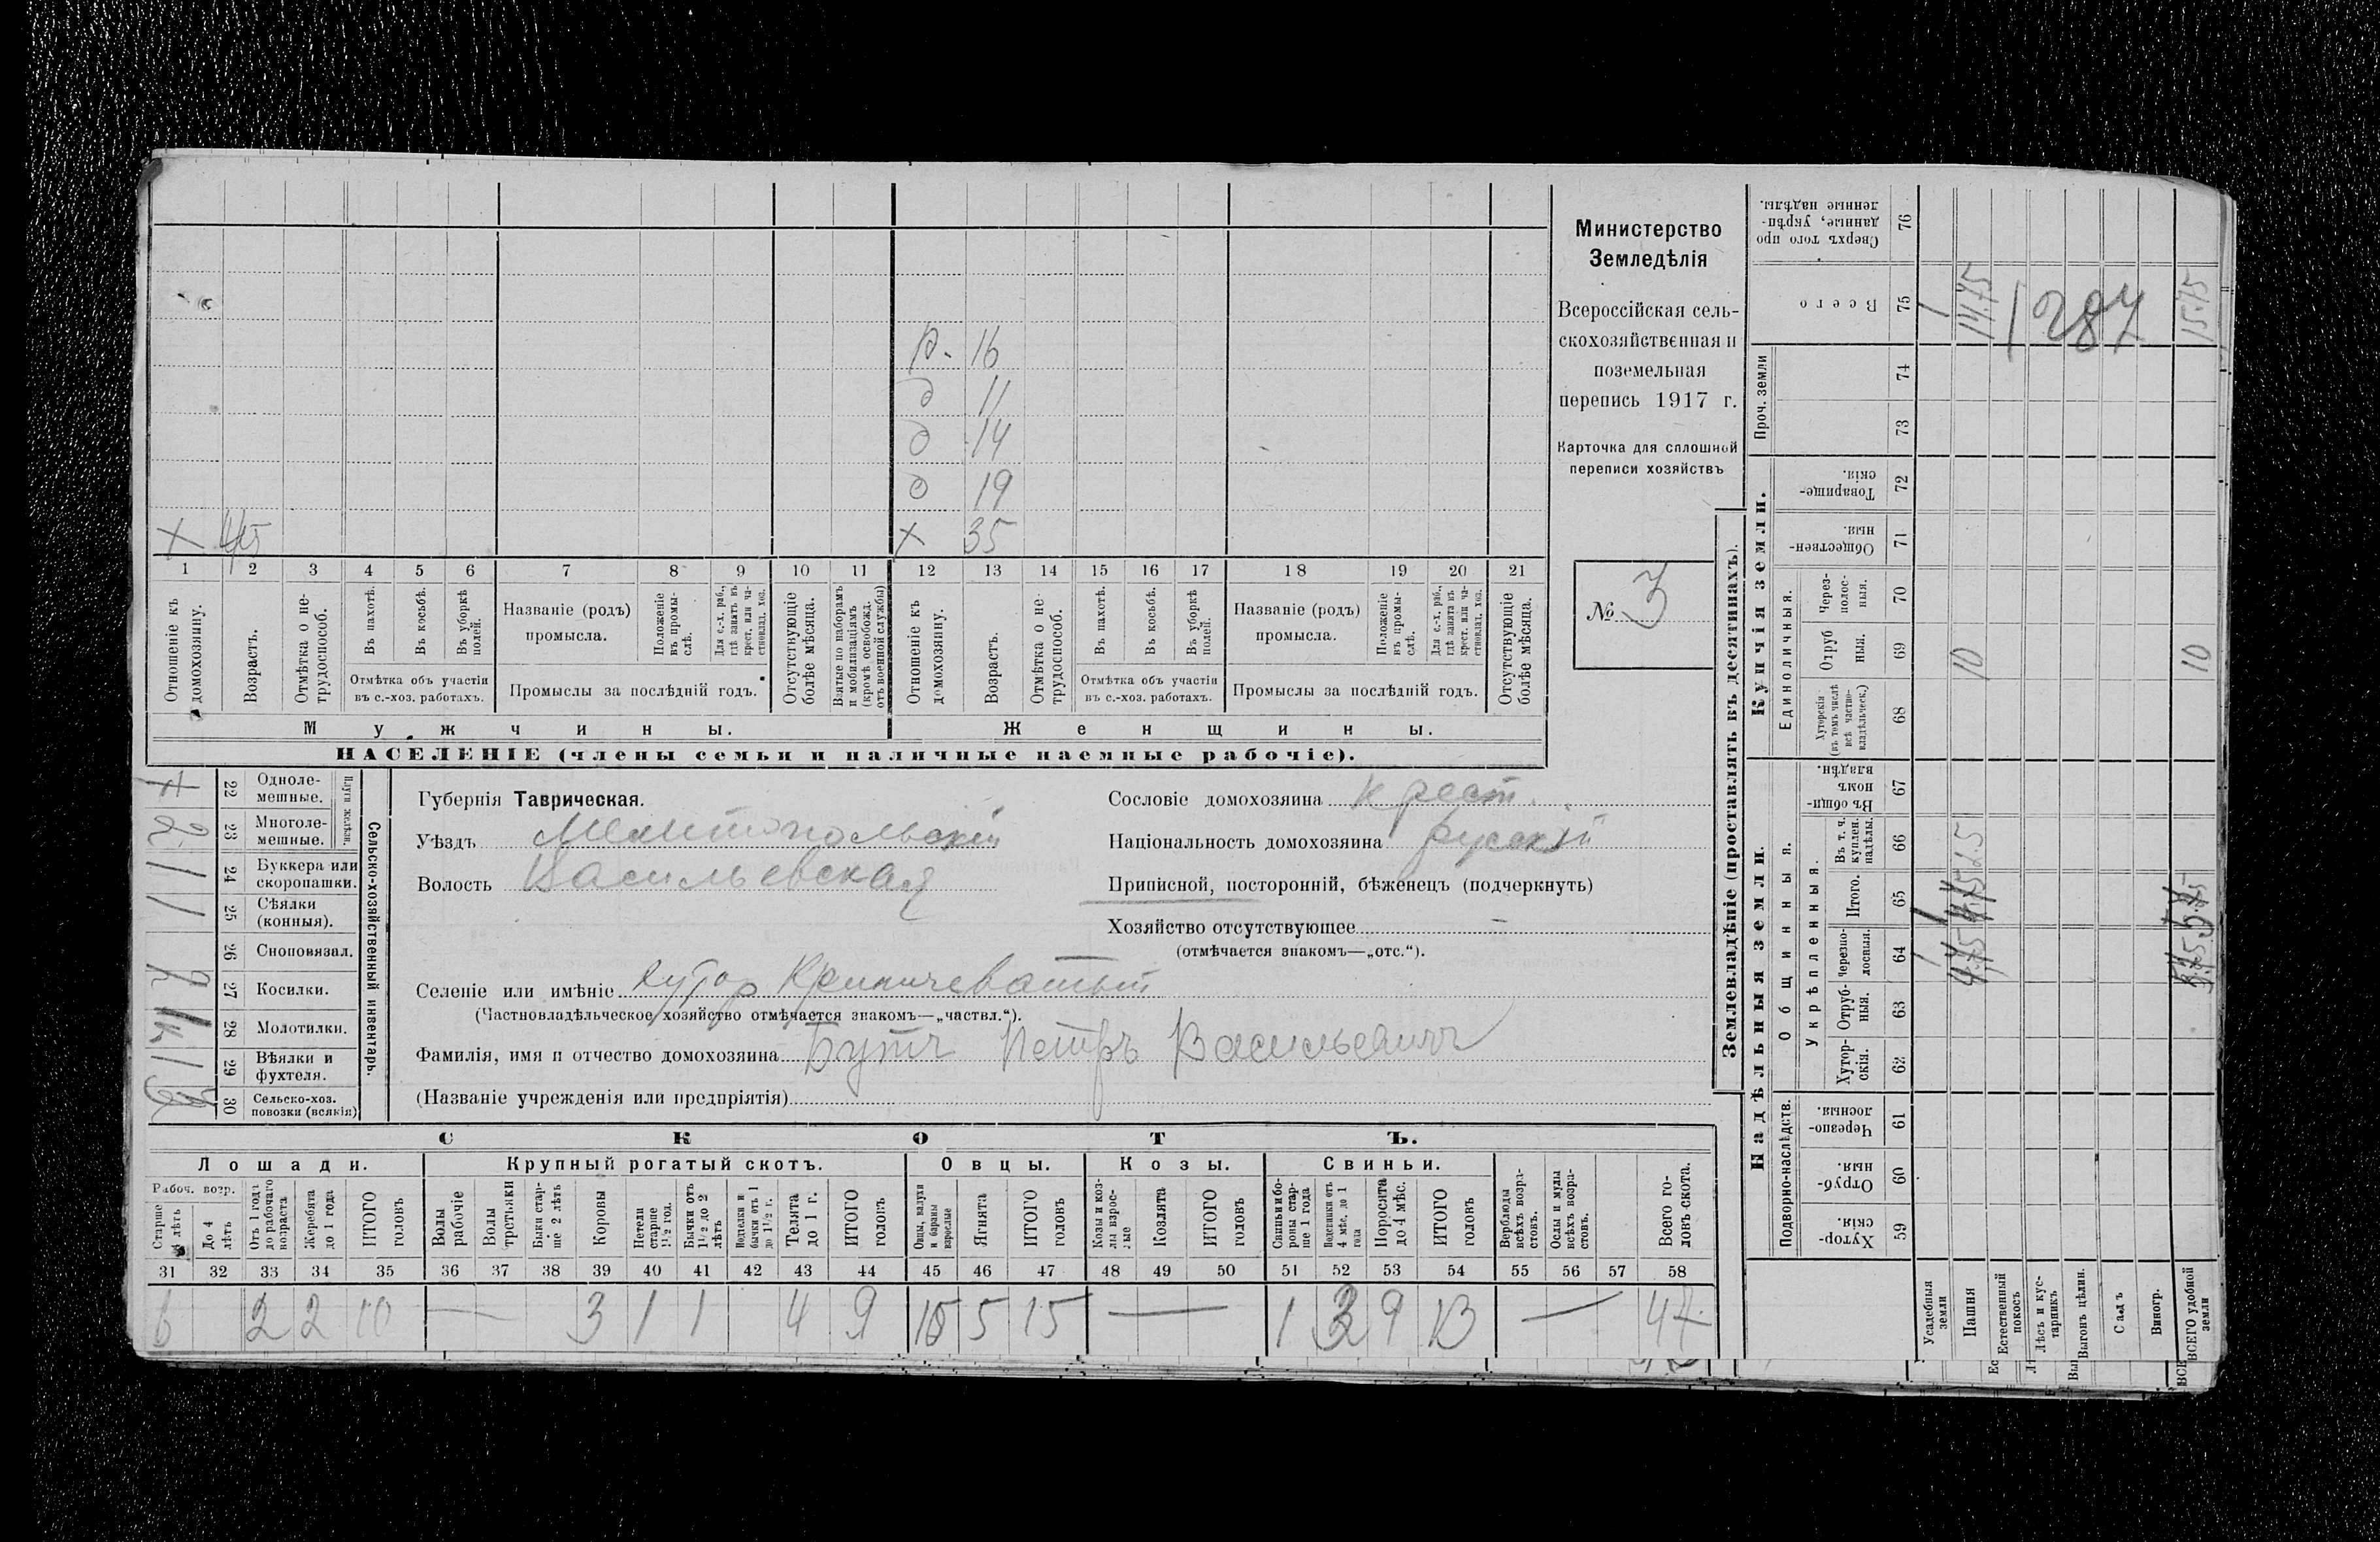 Министерство
Земледѣлія
Всероссійская сель-
скохозяйственная и
поземельная
перепись 1917 г.
Карточка для сплошной
переписи хозяйствъ
№ 3
р. 16
д 11
д 14
д 19
х 45
х 35
1 2 3 4 5 6 7 8 9 10 11 12 13 14 15 16 17 18 19 20 21
Отношеніе къ домохозяину.
Возрастъ.
Отмѣтка о не-трудоспособ.
Въ пахотѣ.
Въ косьбѣ.
Въ уборкѣ полей.
Отмѣтка объ участіи въ с.-хоз. работахъ.
Названіе (родъ) промысла.
Положеніе въ промы-слѣ.
Для с.-х. раб., гдѣ занятъ въ крест. или ча-стновлад. хоз.
Промыслы за послѣдній годъ.
Отсутствующіе болѣе мѣсяца.
Взятые по наборамъ и мобилизаціямъ (кромѣ освобожд. отъ военной службы)
Отношеніе къ домохозяину.
Возрастъ.
Отмѣтка о не-трудоспособ.
Въ пахотѣ.
Въ косьбѣ.
Въ уборкѣ полей.
Отмѣтка объ участіи въ с.-хоз. работахъ.
Названіе (родъ) промысла.
Положеніе въ промы-слѣ.
Для с.-х. раб., гдѣ занята въ крест. или ча-стновлад. хоз.
Промыслы за послѣдній годъ.
Отсутствующіе болѣе мѣсяца.
Мужчины.
Женщины.
НАСЕЛЕНІЕ (члены семьи и наличные наемные рабочіе).
Сельско-хозяйственный инвентарь.
Плуги желѣзн.
22 Одноле-мешные.
23 Многоле-мешные. 2
24 Буккера или скоропашки. 1
25 Сѣялки (конныя). 1
26 Сноповязал.
27 Косилки.
28 Молотилки.
29 Вѣялки и фухтеля. 1
30 Сельско-хоз. повозки (всякія)
Губернія Таврическая.
Уѣздъ Мелитопольскій
Волость Васильевская
Сословіе домохозяина крест.
Національность домохозяина русскій
Приписной, посторонній, бѣженецъ (подчеркнуть)
Хозяйство отсутствующее –
(отмѣчается знакомъ—„отс.“).
Селеніе или имѣніе хутор Криничеватый
(Частновладѣльческое хозяйство отмѣчается знакомъ—„частвл.“).
Фамилія, имя и отчество домохозяина Бутъ Петръ Васильевичъ
(Названіе учрежденія или предпріятія)
СКОТЪ.
Лошади. Крупный рогатый скотъ. Овцы. Козы. Свиньи.
Рабоч. возр.
Старше 4 лѣтъ
До 4 лѣтъ
Отъ 1 года до рабочаго возраста
Жеребята до 1 года
ИТОГО головъ
Волы рабочіе
Волы третьяки
Быки стар-ше 2 лѣтъ
Коровы
Нетели старше 1½ год.
Бычки отъ 1½ до 2 лѣтъ
Нетелки и бычки отъ 1 до 1½ г.
Телята до 1 г.
ИТОГО головъ
Овцы, валухи и бараны взрослые
Ягнята
ИТОГО головъ
Козы и коз-лы взрос-лые
Козлята
ИТОГО головъ
Свиньи и бо-ровы стар-ше 1 года
Подсвинки отъ 4 мѣс. до 1 года
Поросята до 4 мѣс.
ИТОГО головъ
Верблюды всѣхъ возра-стовъ.
Ослы и мулы всѣхъ возра-стовъ.
Всего го-ловъ скота.
31 32 33 34 35 36 37 38 39 40 41 42 43 44 45 46 47 48 49 50 51 52 53 54 55 56 57 58
6 2 2 10 — 3 1 1 4 9 10 5 15 — 1 3 9 13 — 47
Землевладѣніе (проставлять въ десятинахъ).
Надѣльныя земли.
Купчія земли.
Подворно-наслѣдств.
Общинныя.
Укрѣпленныя.
Единоличныя.
Проч. земли
Хутор-скія. 59
Отруб-ныя. 60
Черезпо-лосныя. 61
Хутор-скія. 62
Отруб-ныя. 63
Черезпо-лосныя. 64
Итого. 65
Въ т. ч. куплен. надѣлы. 66
Въ общи-номъ владѣн. 67
Хуторскія (въ томъ числѣ всѣ частно-владѣльческ.) 68
Отруб ныя. 69
Через-полос-ныя. 70
Обществен-ныя. 71
Товарище-скія. 72
73
74
Всего 75
Сверхъ того про данные, укрѣп-ленные надѣлы. 76
Усадебныя земли 1
Пашня 4.75 10 14.75
Естественный покосъ
Лѣсъ и кус-тарникъ
Выгонъ цѣлин.
Садъ
Виногр.
ВСЕГО удобной земли 10 15.75
1287